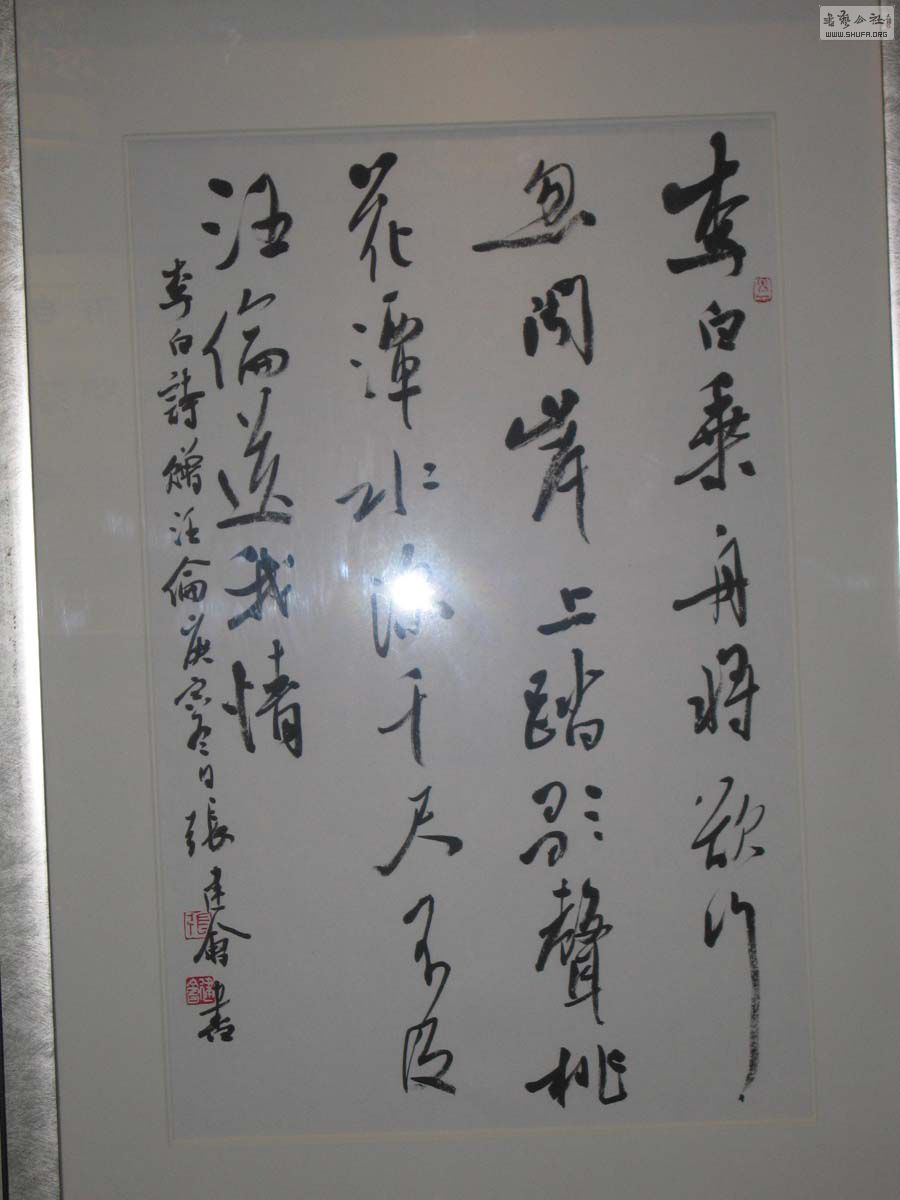 李白乘舟將欲行
忽聞岸上踏歌聲桃
花潭水深千尺不及
汪倫送我情
李白詩贈汪倫庚寅冬日張建會書
書藝公社
WWW.SHUFA.ORG